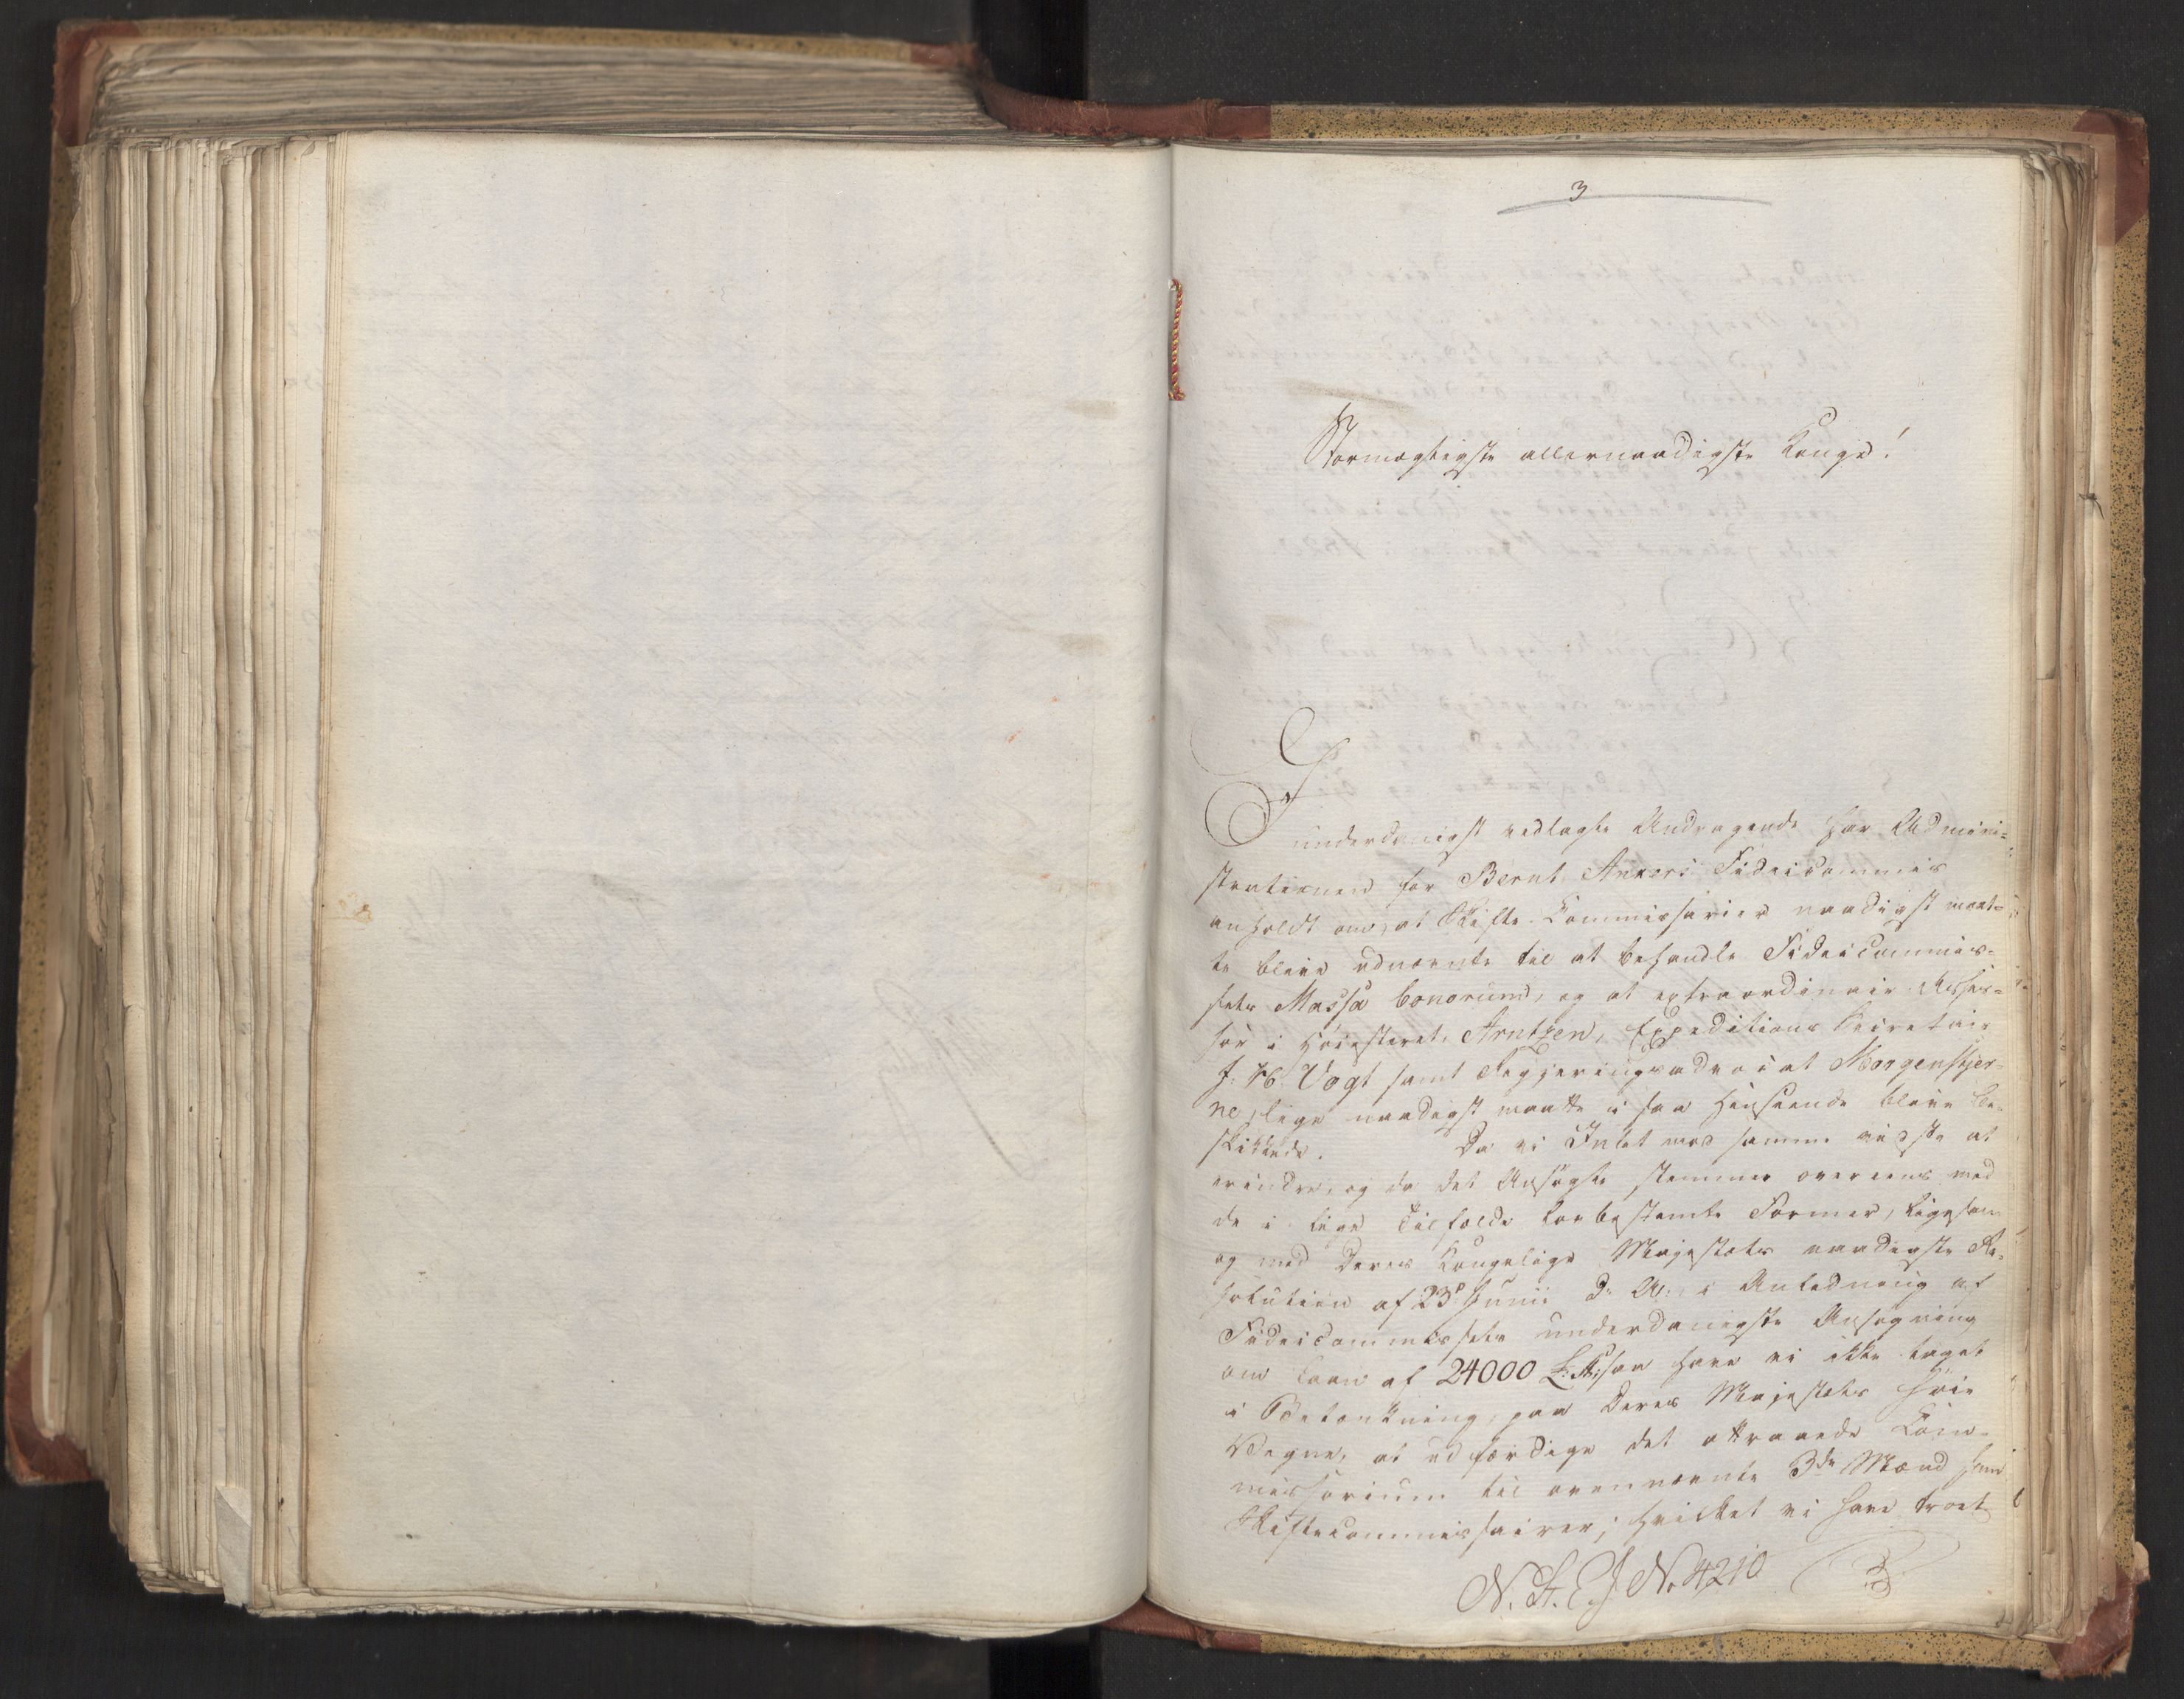 3
Stormægtigste allernaadigste Konge!
I
underdanigst vedlagte Andragende har Admini-
strationen for Bernt Ankers Fideicommis
anholdt om, at Skifte-Commissarier naadigst maat-
te blive udnævnte til at behandle Fideicommis-
sets Massa bonorum, og at extraordinair Asses-
sor i Høiesteret Arntzen, Expeditions Secretair
J: H: Vogt samt Regjeringsadvocat Morgenstjer-
ne, lige naadigst maatte i saa Henseende blive be-
skikkede. Da vi Intet mod samme vidste at
erindre, og da det Ansøgte stemmer overeens med
de i lige Tilfælde lovbestemte Former, ligesom
og med Deres Kongelige Majestæts naadigste Re-
solution af 23de Junii d: A: i Anledning af
Fideicommissets underdanigste Ansøgning
om Laan af 24000 L: St: saa have vi ikke taget
i Betænkning, paa Deres Majestæts høie
Vegne, at udfærdige det attraaede Com-
missorium til ovennævnte 3de Mænd som
Skiftecommissairer; hvilket vi have troet
N. St. E. J. No 4210